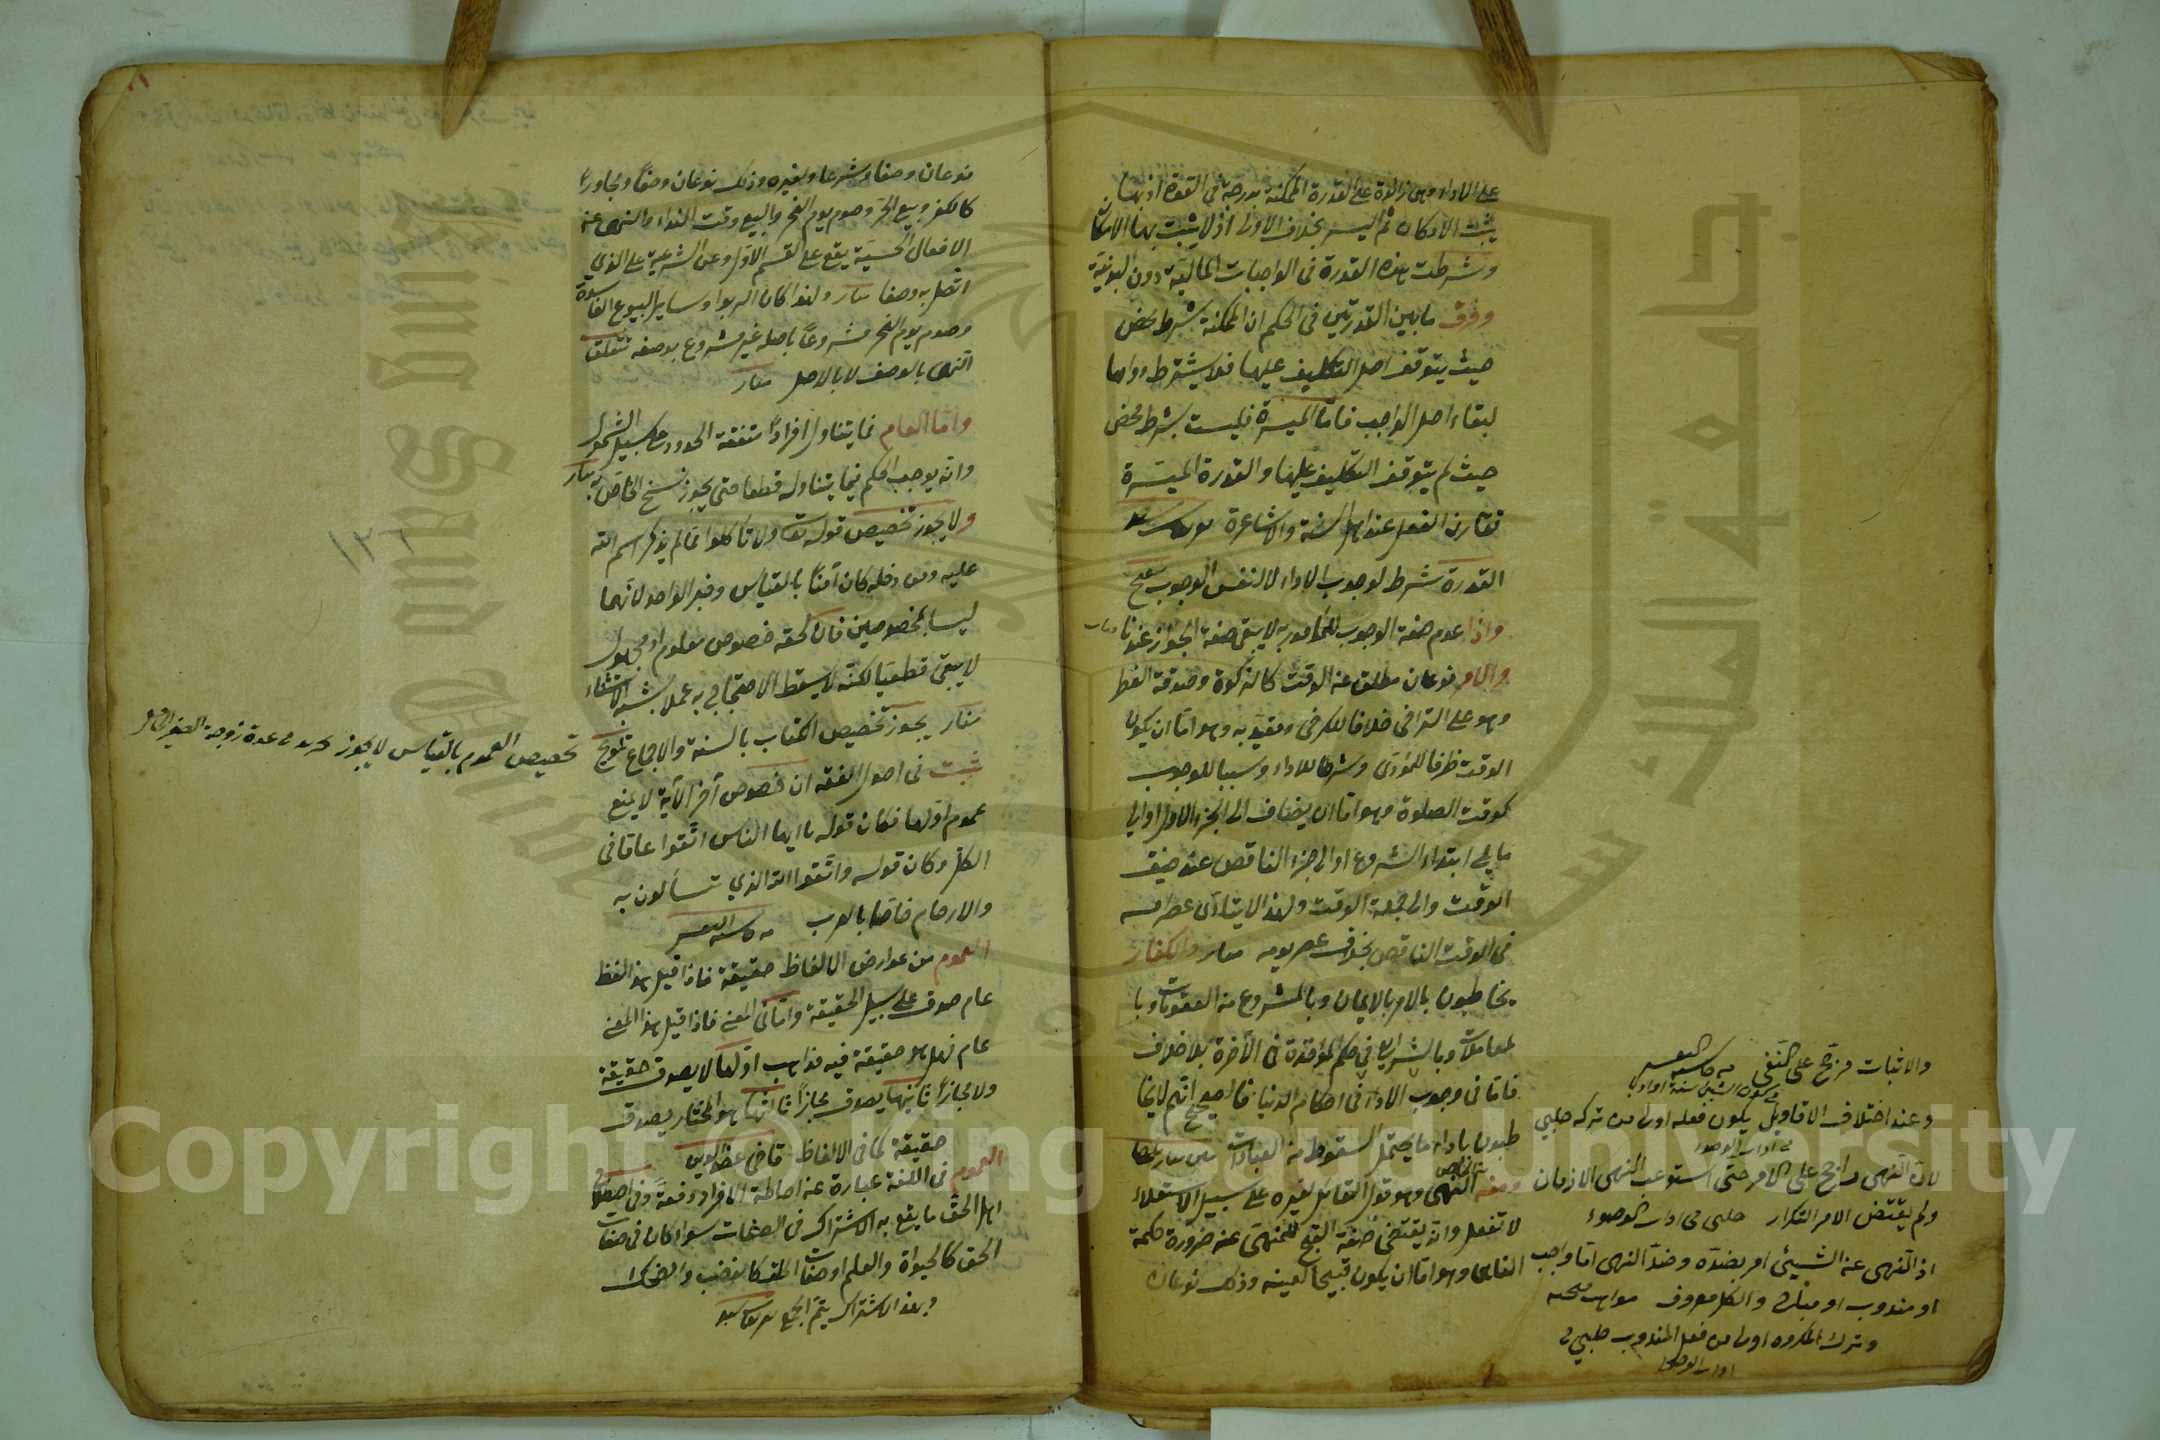 على الاداء وهى زائدة على القدرة الممكنة بدرجة في القوة اذ بها
يثبت الامكان ثم اليسر بخلاف الاولى اذ لا يثبت بها الامكان
وشرطت هذه القدرة في الواجبات المالية دون البدنية
وفرق ما بين القدرتين في الحكم ان الممكنة شرط محض
حيث يتوقف اصل التكليف عليها فلا يشترط دوامها
لبقاء اصل الواجب فاما الميسرة فليست بشرط محض
حيث لم يتوقف التكليف عليها والقدرة الميسرة
تقارن الفعل عند اهل السنة والاشاعرة
القدرة شرط لوجوب الاداء لا لنفس الوجوب
واذا عدم صفة الوجوب للمأمور به لا يبقى صفة الجواز عندنا
والامر نوعان مطلق عن الوقت كالزكوة وصدقة الفطر
وهو على التراخى خلافا للكرخى ومقيد به وهو اما ان يكون
الوقت ظرفا للمؤدى وشرطا للاداء وسببا للوجوب
كوقت الصلوة وهو اما ان يضاف الى الجزء الاول او الى
ما يلى ابتداء الشروع او الى جزء الناقص عند ضيق
الوقت والى جملة الوقت ولهذا لا يتادى عصر امسه
في الوقت الناقص بخلاف عصر يومه منار والكفار
يخاطبون بالامر بالايمان وبالمشروع من العقوبات وبا
لمعاملات وبالشرايع في حكم المؤاخذة في الآخرة بلا خلاف
فاما في وجوب الاداء في احكام الدنيا فالصحيح انهم لا يخا
طبون باداء ما يحتمل السقوط من العبادات
ومنه النهى وهو قول القائل لغيره على سبيل الاستعلاء
لا تفعل وانه يقتضى صفة القبح للمنهى عنه ضرورة حكمة
الناهى وهو اما ان يكون قبيحا لعينه وذلك نوعان
والاثبات مرجح على النفى
وعند اختلاف الاقاويل يكون فعله اولى من تركه حلبي
لان النهى راجح على الامر حتى استوعب النهى الازمان
ولم يقتض الامر التكرار حلبى في اداب الوضوء
اذ النهى عن الشيئ امر بضده وضد النهى اما واجب
او مندوب او مباح والكل معروف
وترك المكروه اولى من فعل المندوب حلبي في
اداب الوضوء
نوعان وصفا وشرعا ولغيره وذلك نوعان وصفا ومجاورا
كالكفر وبيع الحر وصوم يوم النحر والبيع وقت النداء والنهى عن
الافعال الحسية يقع على القسم الاول وعن الشرعية على الذي
اتصل به وصفا منار ولهذا كان الربوا وساير البيوع الفاسدة
وصوم يوم النحر مشروعا باصله غير مشروع بوصفه لتعلق
النهى بالوصف لا بالاصل منار
واما العام فما يتناول افرادا متفقة الحدود على سبيل الشمول
وانه يوجب الحكم فيما يتناوله قطعا حتى يجوز نسخ الخاص به منار
ولا يجوز تخصيص قوله تعالى ولا تأكلوا مما لم يذكر اسم الله
عليه ومن دخله كان آمنا بالقياس وخبر الواحد لانهما
ليسا بمخصوصين فان لحقه خصوص معلوم او مجهول
لا يبقى قطعيا لكنه لا يسقط الاحتجاج به عملا بشبه الاستثناء
منار يجوز تخصيص الكتاب بالسنة والاجماع تلويح
ثبت في اصول الفقه ان خصوص آخر الآية لا يمنع
عموم اولها فكان قوله يا ايها الناس اتقوا عاما في
الكل وكان قوله واتقوا الله الذي تسألون به
والارحام خاصا بالعرب
العموم من عوارض الالفاظ حقيقة فاذا قيل هذا لفظ
عام صدق على سبيل الحقيقة واما في المعنى فاذا قيل هذا المعنى
عام فهل هو حقيقة فيه مذاهب اولها لا يصدق حقيقة
ولا مجازا ثانيها يصدق مجازا ثالثها وهو المختار يصدق
حقيقة كما في الالفاظ قاضى عضد الدين
العموم في اللغة عبارة عن احاطة الافراد دفعة وفي اصطلاح
اهل الحق ما يقع به الاشتراك في الصفات سواء كان في صفات
الحق كالحيوة والعلم او صفات الخلق كالغضب والضحك
وبهذا الاشتراك يتم الجمع
تخصيص العموم بالقياس لا يجوز
١٢٦